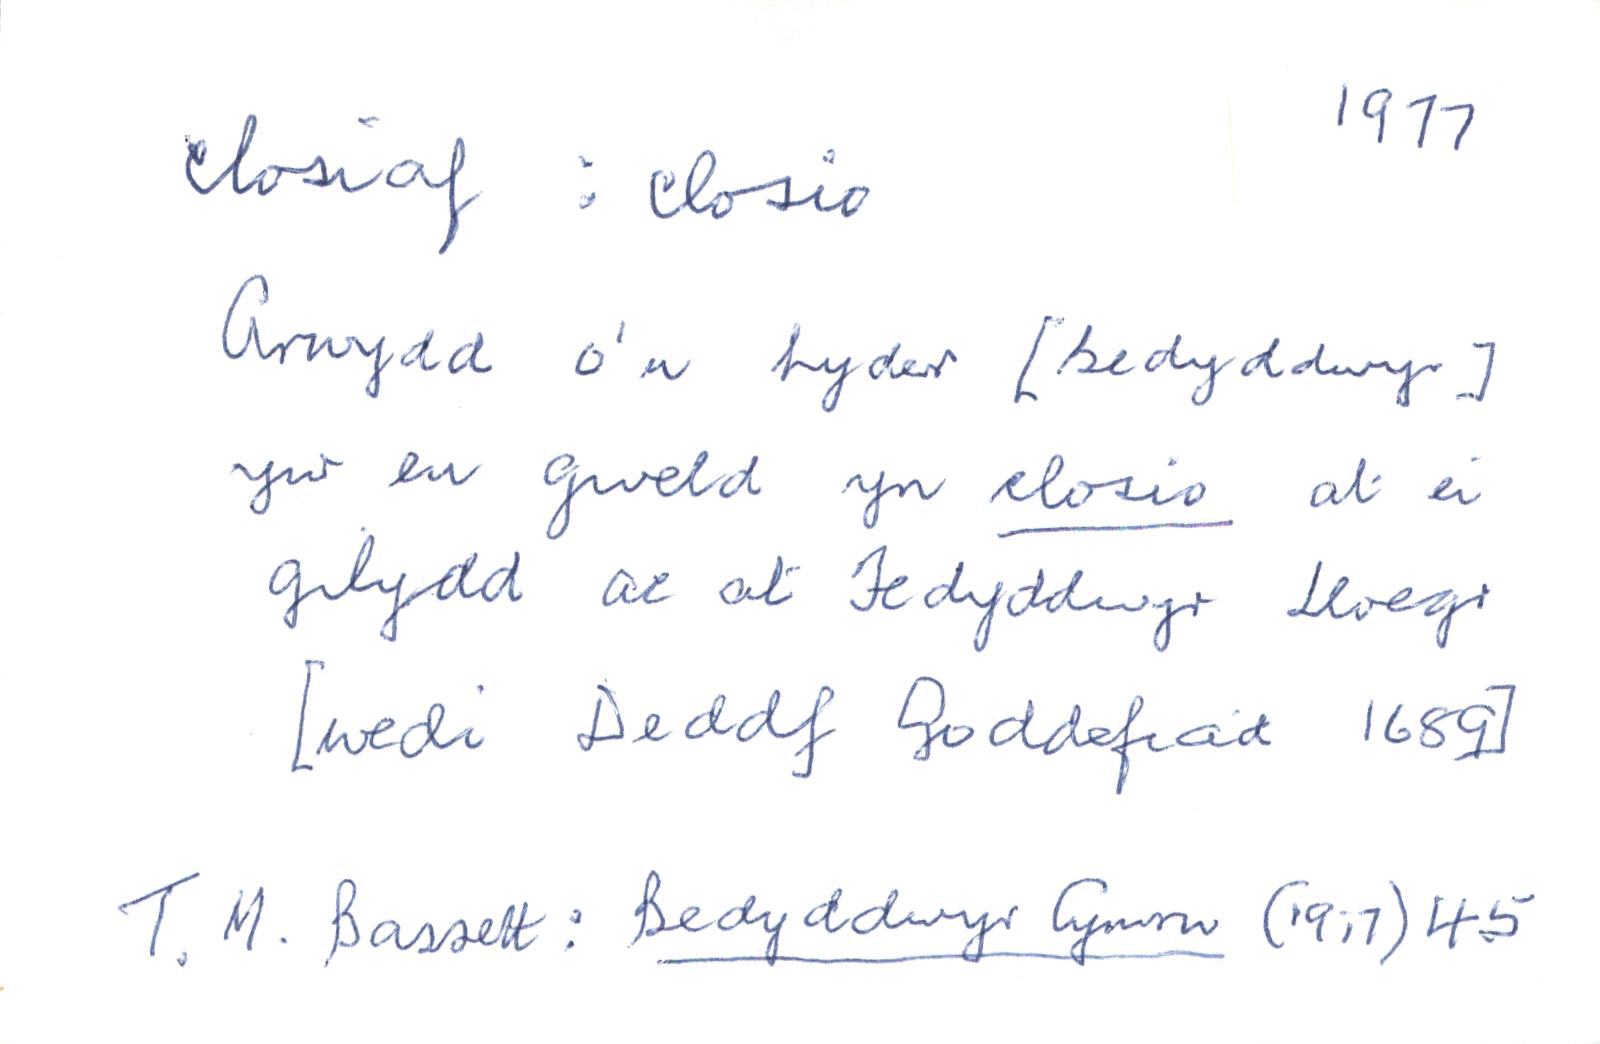 1977
closiaf : closio
Arwydd o'u hyder [bedyddwyr]
yw eu gweld yn closio at ei
gilydd ac at Fedyddwyr Lloegr
[wedi Deddf Goddefiad 1689]
T. M. Bassett : Bedyddwyr Cymru (1977) 45